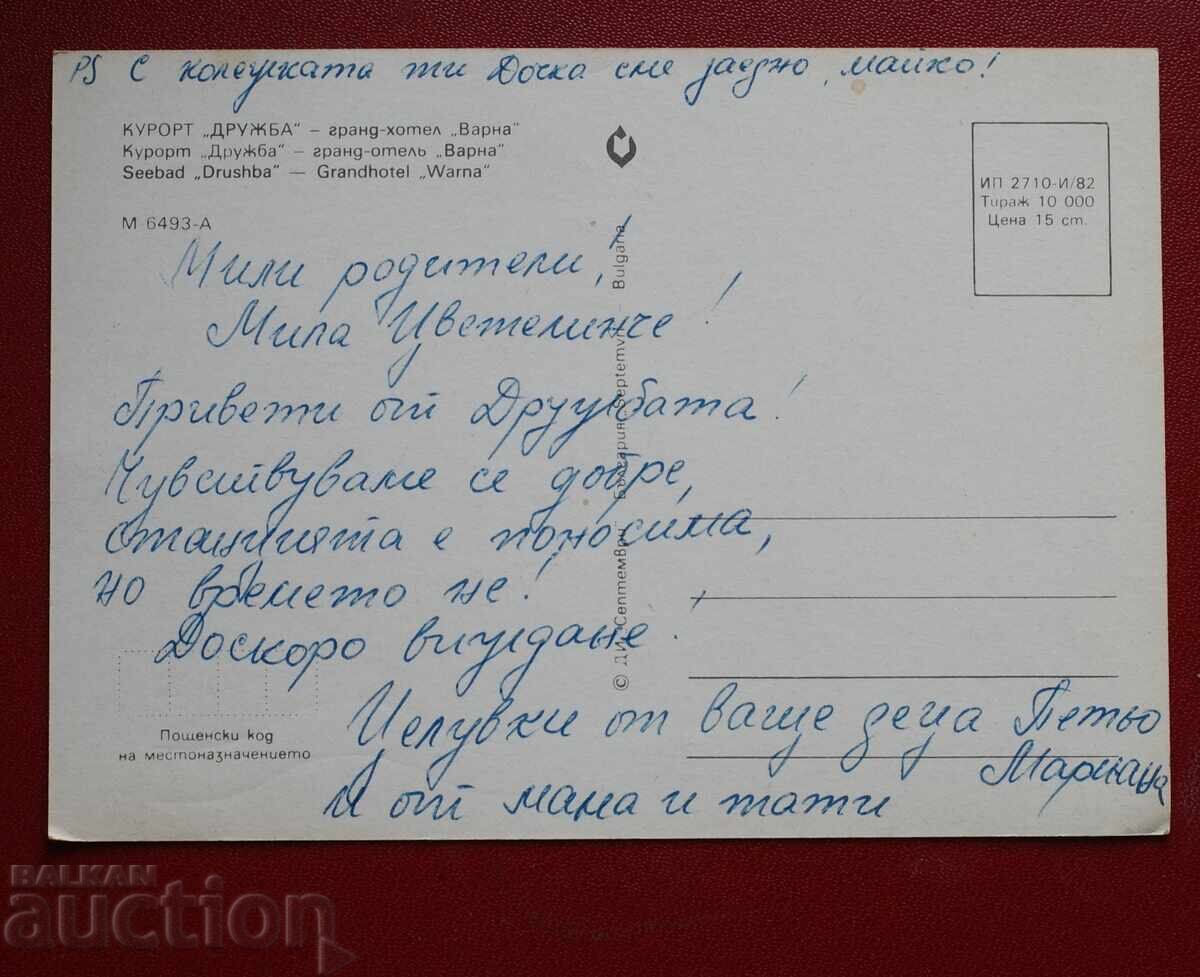 PS С колежката ти Дочка сме заедно, майко!
КУРОРТ „ДРУЖБА" – гранд-хотел „Варна"
Курорт „Дружба" – гранд-отель „Варна"
Seebad „Drushba" — Grandhotel „Warna"
М 6493-А
ИП 2710-И/82
Тираж 10 000
Цена 15 ст.
Мили родители!
Мила Цветелинче!
Привети от Дружбата!
Чувствуваме се добре,
станцията е поносима,
но времето не!
Доскоро виждане.
Целувки от ваще деца Петьо
Мариана
и от мама и тати
Пощенски код
на местоназначението
© ДИ „Септември" България „Septemvri" Bulgaria
BALKAN
auction